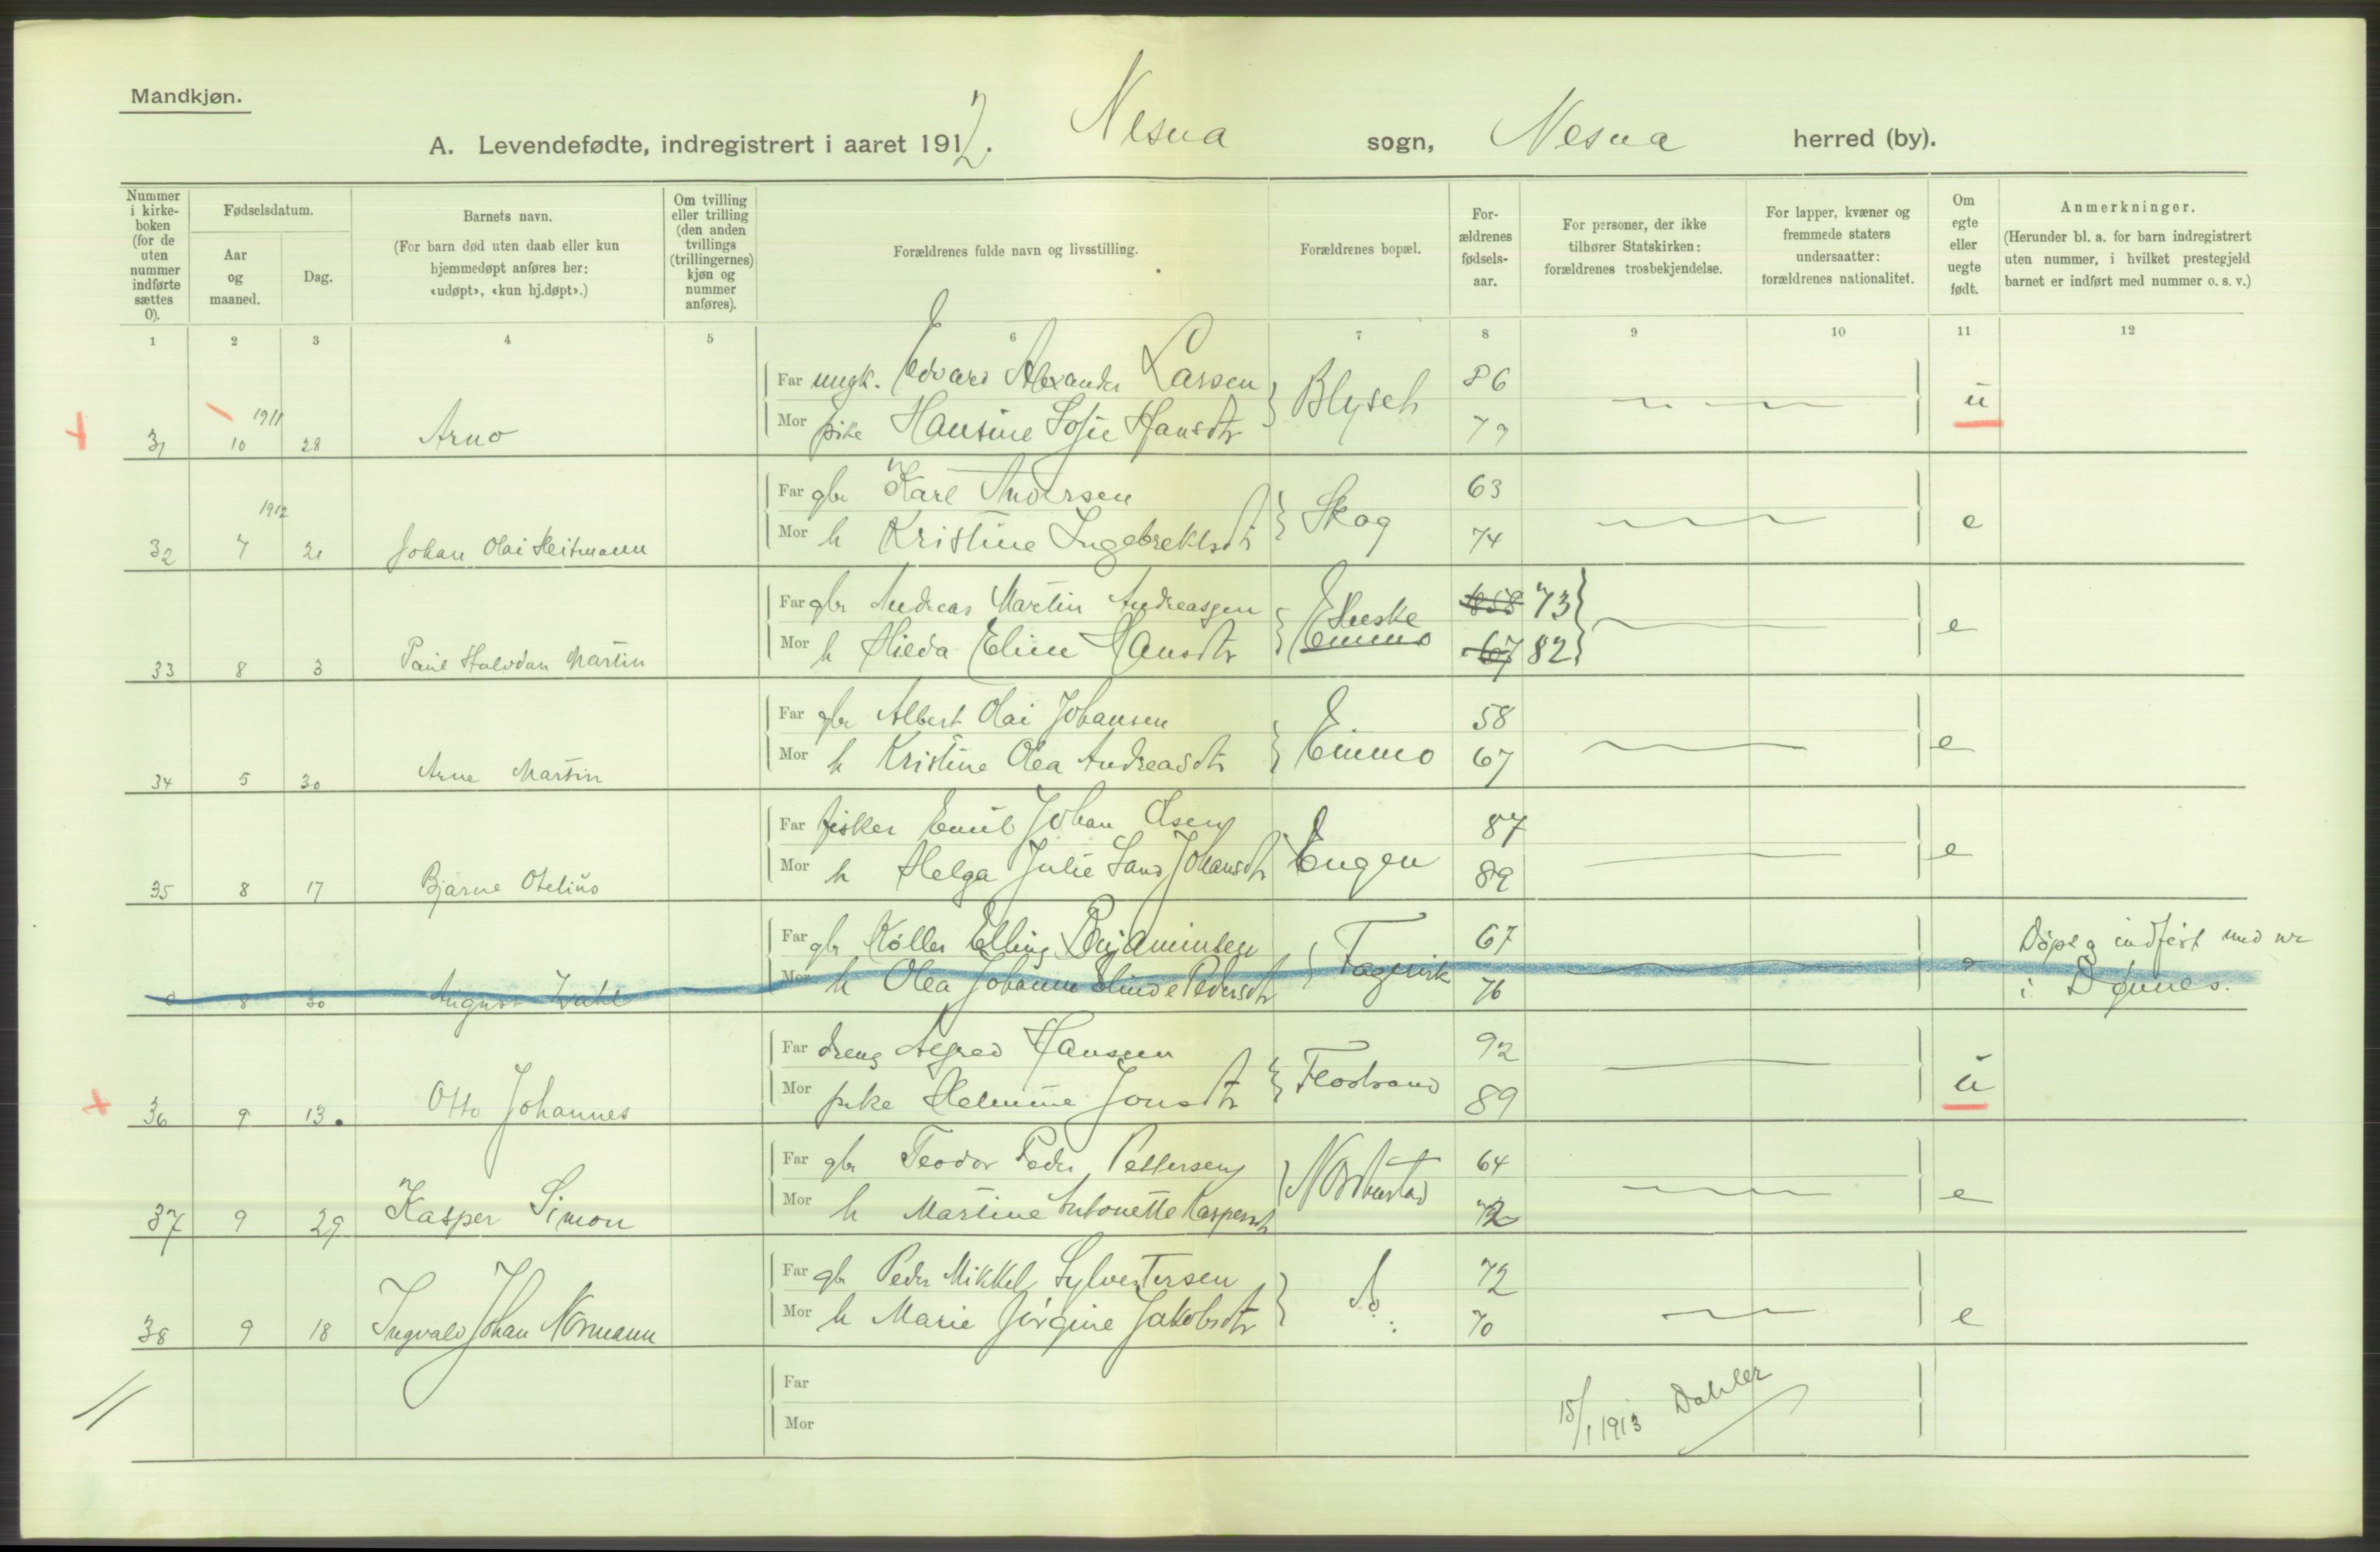 Mandkjøn.
A. Levendefødte, indregistrert i aaret 1912. Nesna sogn, Nesna herred (by).
Nummer i kirke-boken (for de uten nummer indførte sættes 0).
Fødselsdatum.
Aar og maaned.
Dag.
Barnets navn.
(For barn død uten daab eller kun hjemmedøpt anføres her: «udøpt», «kun hj.døpt».)
Om tvilling eller trilling (den anden tvillings (trillingernes) kjøn og nummer anføres).
Forældrenes fulde navn og livsstilling.
Forældrenes bopæl.
For-ældrenes fødsels-aar.
For personer, der ikke tilhører Statskirken: forældrenes trosbekjendelse.
For lapper, kvæner og fremmede staters undersaatter: forældrenes nationalitet.
Om egte eller uegte født.
Anmerkninger.
(Herunder bl. a. for barn indregistrert uten nummer, i hvilket prestegjeld barnet er indført med nummer o. s. v.)
1 2 3 4 5 6 7 8 9 10 11 12
Far ungk. Edvard Alexander Larsen 86
Mor pike Hansine Sofie Hansdtr Blyseh 79
31 1911 10 28 Arno u
Far gbr Karl Andersen 63
Mor h Kristine Ingebrektsdtr Skog 74
32 1912 7 21 Johan Olai Heitmann e
Far gbr Andreas Martin Andreassen Huske 1858 73
Mor h Hilda Eline Hansdtr Emmo 67 82
33 8 3 Paul Halvdan Martin e
Far gbr Albert Olai Johansen 58
Mor h Kristine Olea Andreasdtr Emmo 67
34 5 30 Arne Martin e
Far fisker Emil Johan Olsen 87
Mor h Helga Julie Sand Johansdtr Engen 89
35 8 17 Bjarne Otelius e
Far gbr Køller Elling Benjaminsen 67
Mor h Olea Johanna Pedersdtr Fagervik 76
0 8 30 August e
Døpt og indført med nr i Dønnes.
Far dreng Alfred Hansen 92
Mor pike Helmine Jonsdtr Flostrand 89
36 9 13 Otto Johannes u
Far gbr Teodor Peder Pettersen 64
Mor h Martine Antonette Kaspersdtr 72
37 9 29 Kasper Simon e
Far gbr Peder Mikkel Sylvestersen 72
Mor h Marie Jørgine Jakobsdtr 70
38 9 18 Ingvald Johan Normann e
Far
Mor
15/1 1913 Dahler